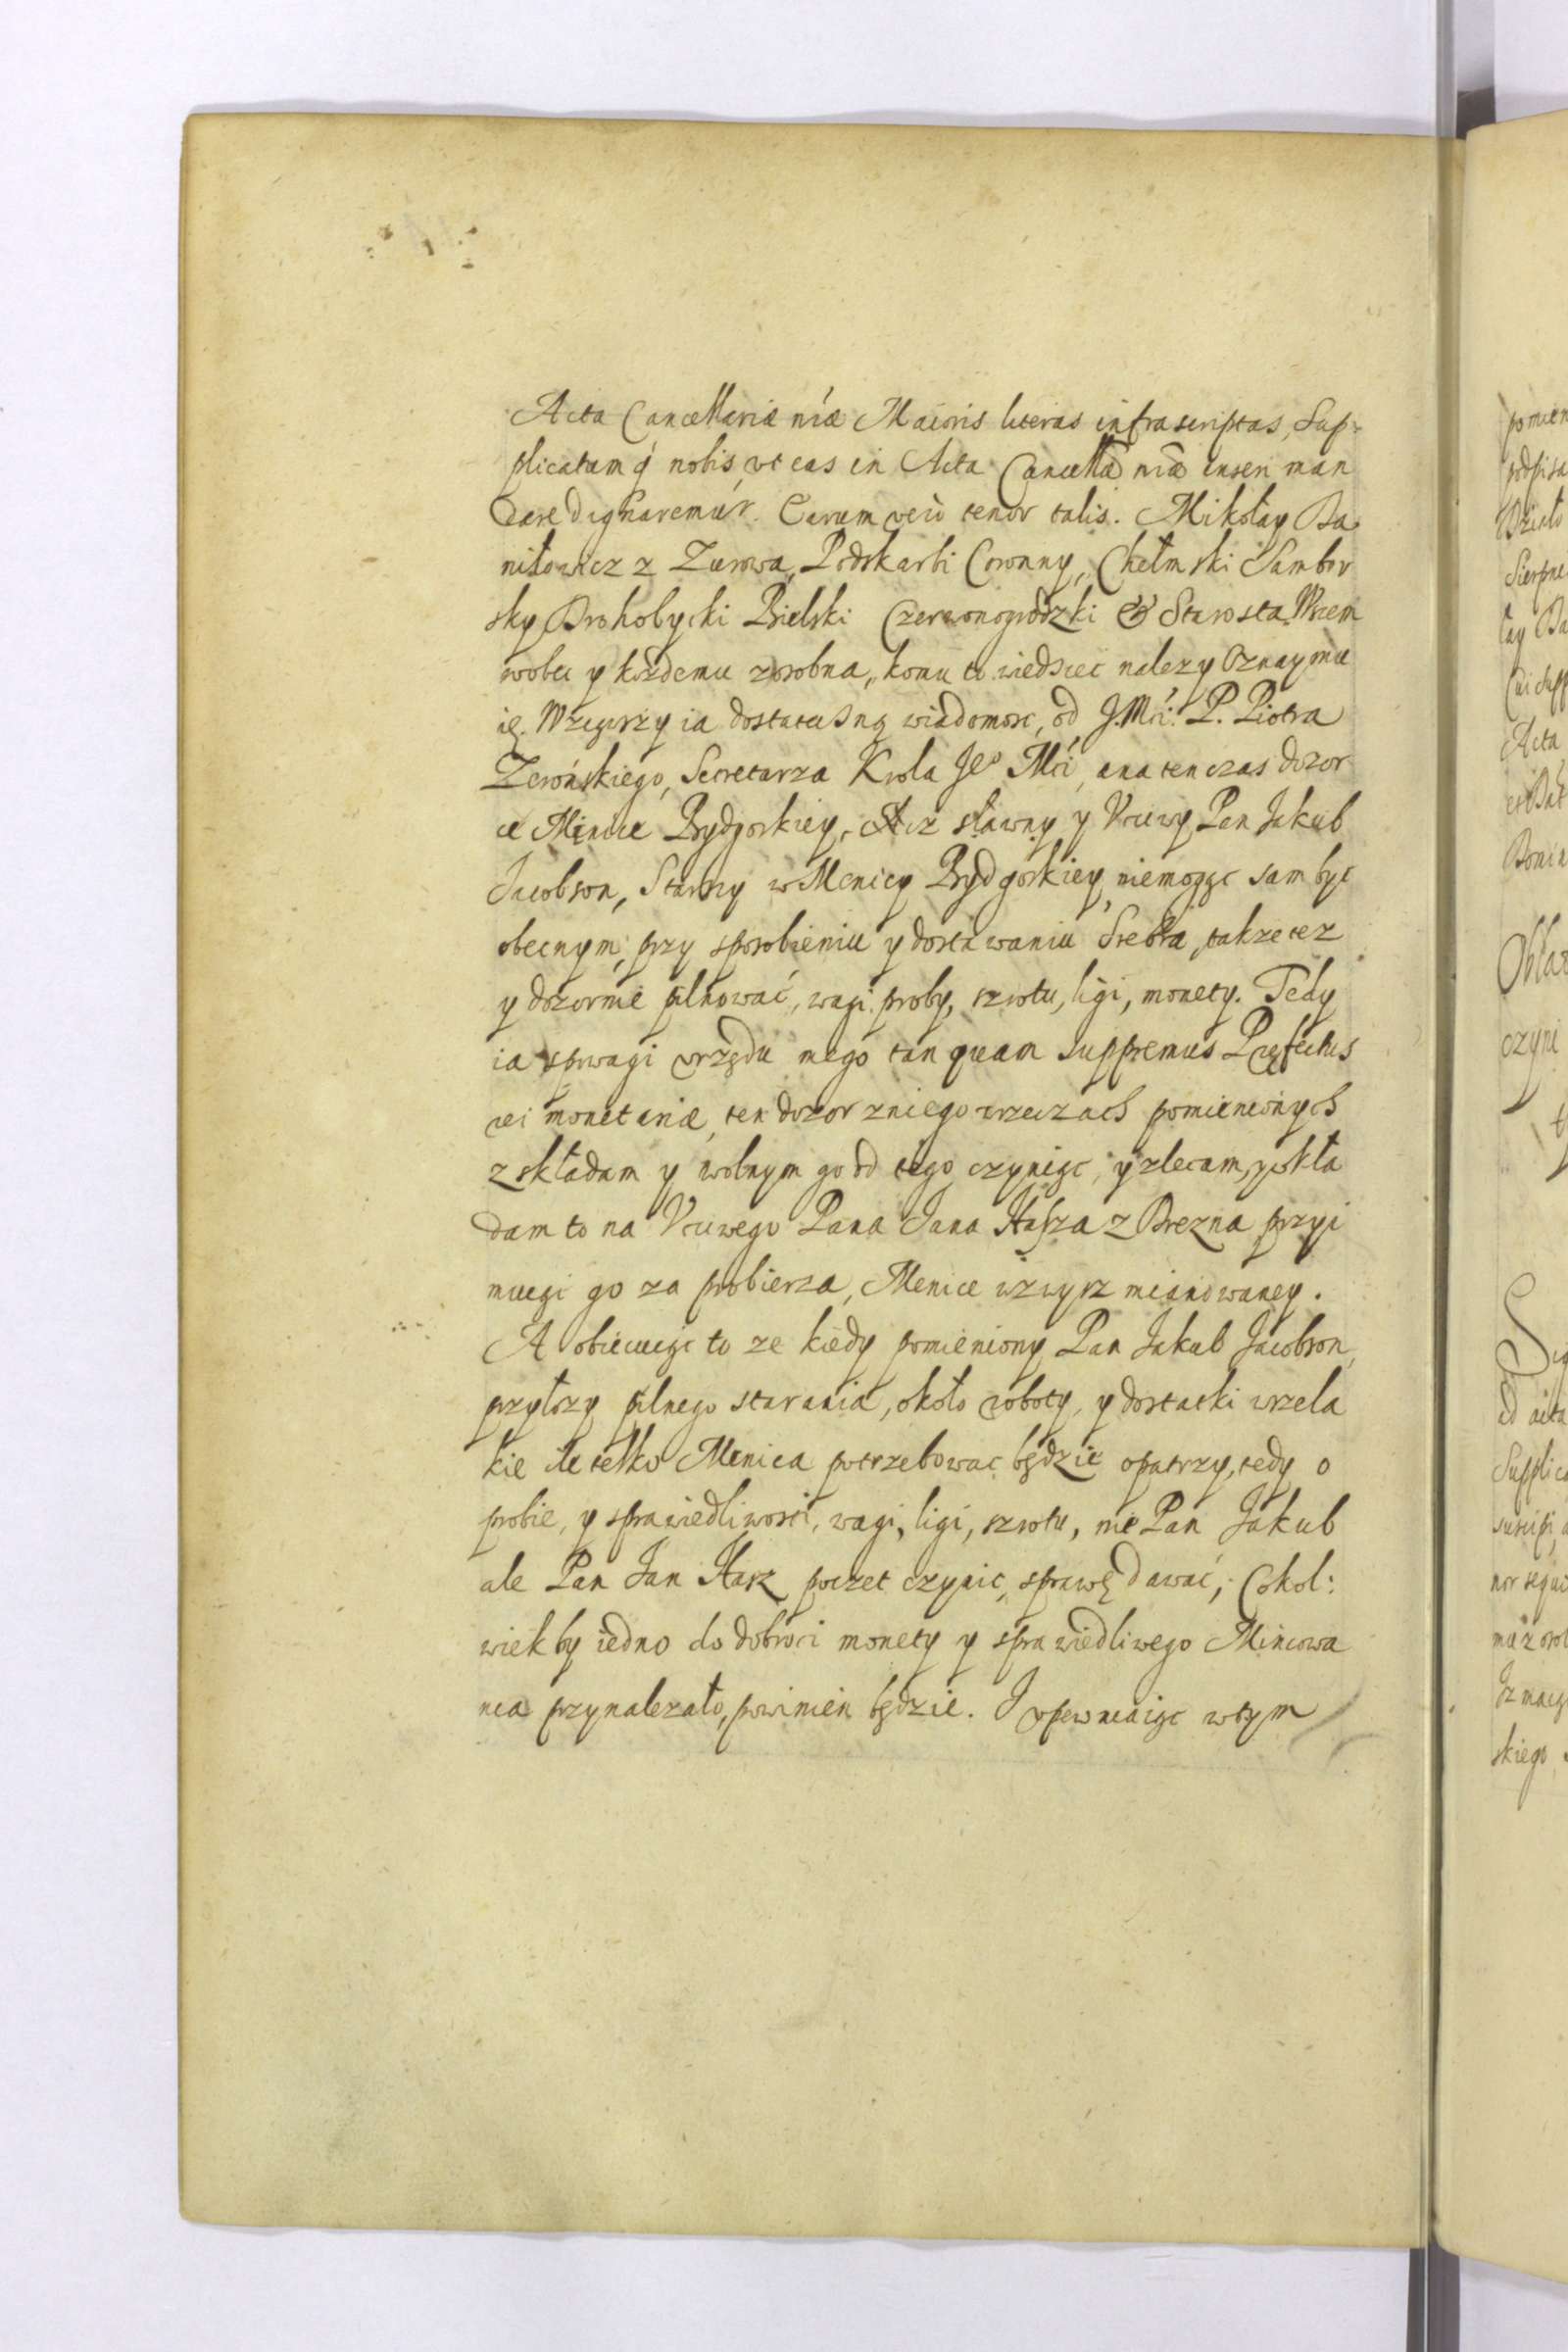 Acta Cancellariæ nr̃æ Maioris literas infrascriptas, Sup-
plicatumq́ nobis, vt eas in Acta Cancellã nr̃æ inseri man
dare dignaremur. Earum verò tenor talis. Mikołay Da
niłowicz z Zurowa, Podskarbi Coronny, Chełmski Sambor
sky Drohobycki Bielski Czerwonogrodzki & Starosta. Wszem
wobec y kożdemu zosobna, komu to wiedziec nalezy Oznaymu
ię. Wziąwszy ia dostateczną wiadomosc, od J. Mći. P. Piotra
Zerońskiego, Secretarza Krola Jeo Mći, ana tenczas dozor
ce Mennice Bydgoskiey, Acz sławny y Vcciwy Pan Jakub
Jacobson, Starszy w Mennicy Bydgoskiey, niemogąc sam byc
obecnym, przy sposobieniu y dostawaniu Srebra, takze tez
y dozornie pilnować, wagi proby, szrotu, ligi, monety. Tedy
ia spowagi vrzędu mego tanquam Suppremus Præfectus
rei monetariæ, ten dozor zniego wrzeczach pomienionych
zskładam y wolnym go od tego czynięc, y zlecam, y wkła
dam to na Vcciwego Pana Jana Hasza z Brezna przyi
muięci go za probierza, Menice wzwysz mianowaney.
A obiecuięc to ze kiedy pomieniony Pan Jakub Jacobson,
przyłozy pilnego starania, około roboty, y dostatki wszela
kie ile telko Menica potrzebowac będzie opatrzy, tedy o
probie, y sprawiedliwosci, wagi, ligi, szrotu, nie Pan Jakub
ale Pan Jan Hasz poczet czynic, sprawę dawać, Cokol:
wiekby iedno do dobroci monety y sprawiedliwego Mincowa
nia przynalezało, powinien będzie. I vpewniaięc wtym